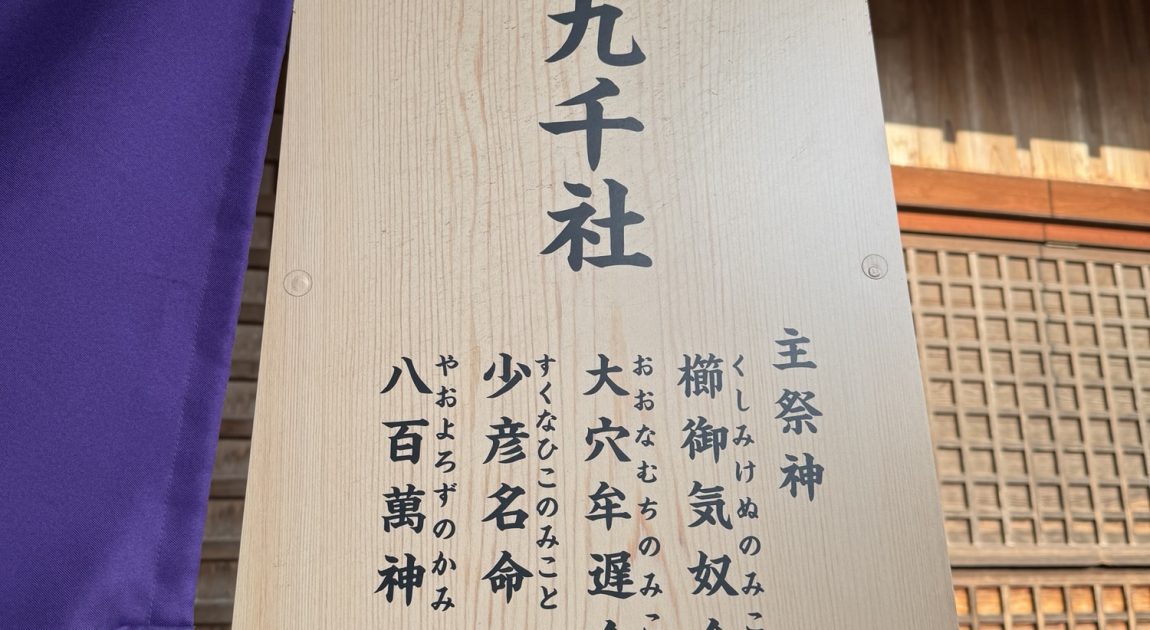 九千社
主祭神
くしみけぬのみこ
櫛御気奴
おおなむちのみこ
大穴牟遅
すくなひこのみこと
少彦名命
やおよろずのかみ
八百萬神